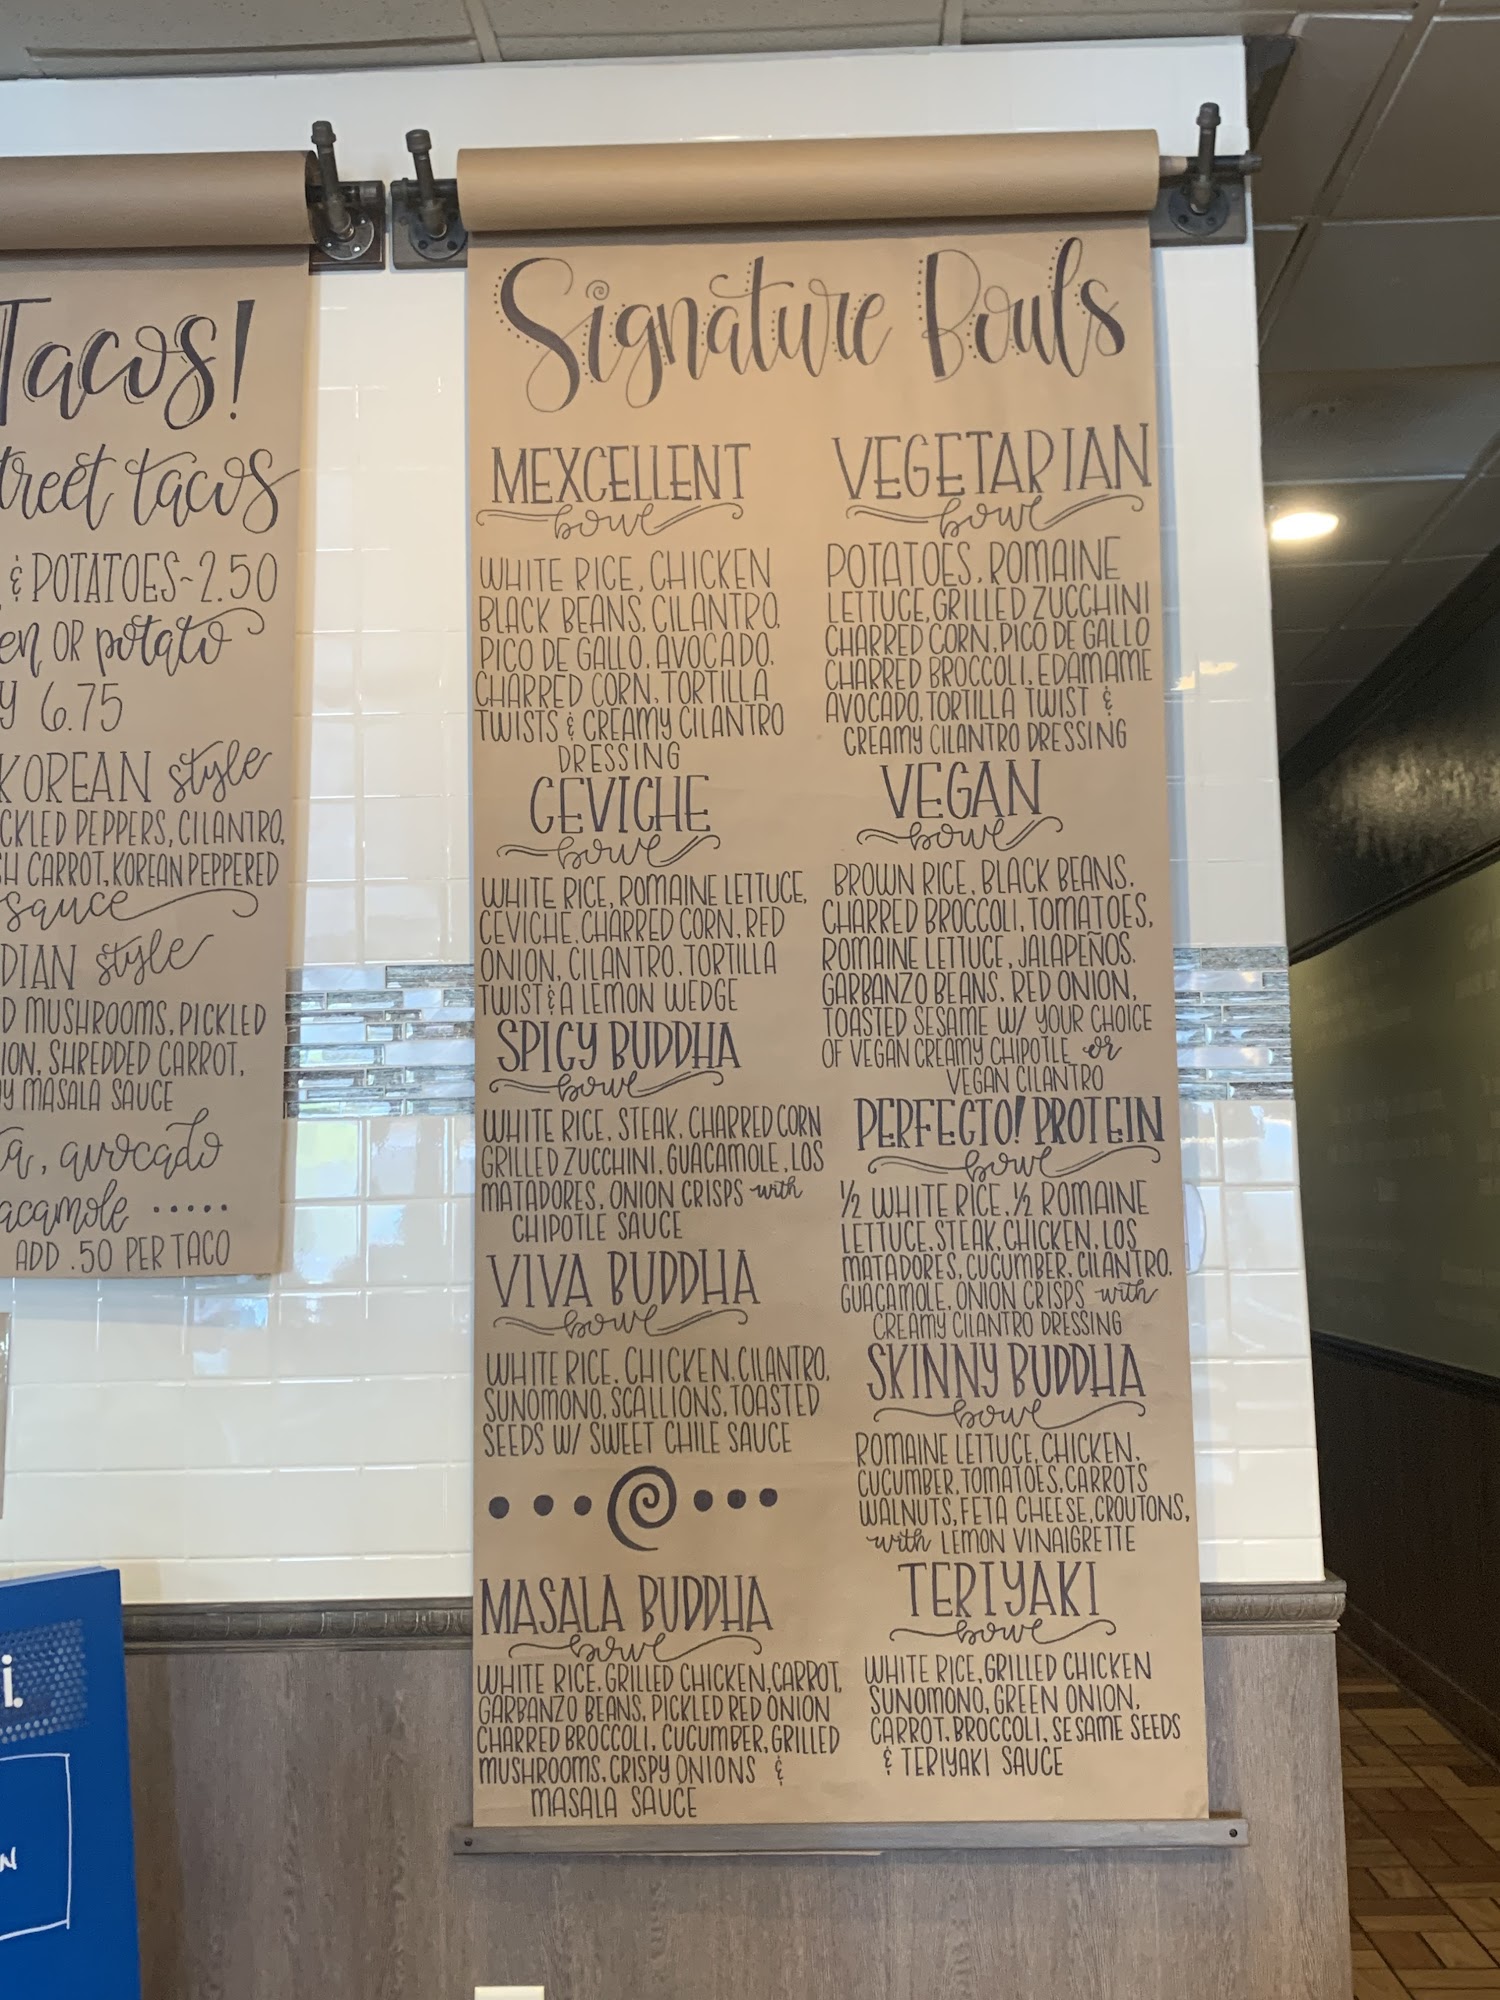 Tacos!
treet tacos
& POTATOES~2.50
en OR potato
Y 6.75
KOREAN style
CKLED PEPPERS, CILANTRO,
SH CARROT, KOREAN PEPPERED
sauce
DIAN style
D MUSHROOMS, PICKLED
ION, SHREDDED CARROT,
Y MASALA SAUCE
a, avocado
acamole .....
ADD .50 PER TACO
Signature Bowls
MEXCELLENT
bowl
WHITE RICE, CHICKEN
BLACK BEANS, CILANTRO,
PICO DE GALLO, AVOCADO,
CHARRED CORN, TORTILLA
TWISTS & CREAMY CILANTRO
DRESSING
CEVICHE
bowl
WHITE RICE, ROMAINE LETTUCE,
CEVICHE, CHARRED CORN, RED
ONION, CILANTRO, TORTILLA
TWIST & A LEMON WEDGE
SPICY BUDDHA
bowl
WHITE RICE, STEAK, CHARRED CORN
GRILLED ZUCCHINI, GUACAMOLE, LOS
MATADORES, ONION CRISPS with
CHIPOTLE SAUCE
VIVA BUDDHA
bowl
WHITE RICE, CHICKEN, CILANTRO,
SUNOMONO, SCALLIONS, TOASTED
SEEDS W/ SWEET CHILE SAUCE
MASALA BUDDHA
bowl
WHITE RICE, GRILLED CHICKEN, CARROT,
GARBANZO BEANS, PICKLED RED ONION
CHARRED BROCCOLI, CUCUMBER, GRILLED
MUSHROOMS, CRISPY ONIONS &
MASALA SAUCE
VEGETARIAN
bowl
POTATOES, ROMAINE
LETTUCE, GRILLED ZUCCHINI
CHARRED CORN, PICO DE GALLO
CHARRED BROCCOLI, EDAMAME
AVOCADO, TORTILLA TWIST &
CREAMY CILANTRO DRESSING
VEGAN
bowl
BROWN RICE, BLACK BEANS,
CHARRED BROCCOLI, TOMATOES,
ROMAINE LETTUCE, JALAPEÑOS,
GARBANZO BEANS, RED ONION,
TOASTED SESAME W/ YOUR CHOICE
OF VEGAN CREAMY CHIPOTLE or
VEGAN CILANTRO
PERFECTO! PROTEIN
bowl
½ WHITE RICE, ½ ROMAINE
LETTUCE, STEAK, CHICKEN, LOS
MATADORES, CUCUMBER, CILANTRO,
GUACAMOLE, ONION CRISPS with
CREAMY CILANTRO DRESSING
SKINNY BUDDHA
bowl
ROMAINE LETTUCE, CHICKEN,
CUCUMBER, TOMATOES, CARROTS
WALNUTS, FETA CHEESE, CROUTONS,
with LEMON VINAIGRETTE
TERIYAKI
bowl
WHITE RICE, GRILLED CHICKEN
SUNOMONO, GREEN ONION,
CARROT, BROCCOLI, SESAME SEEDS
& TERIYAKI SAUCE
i.